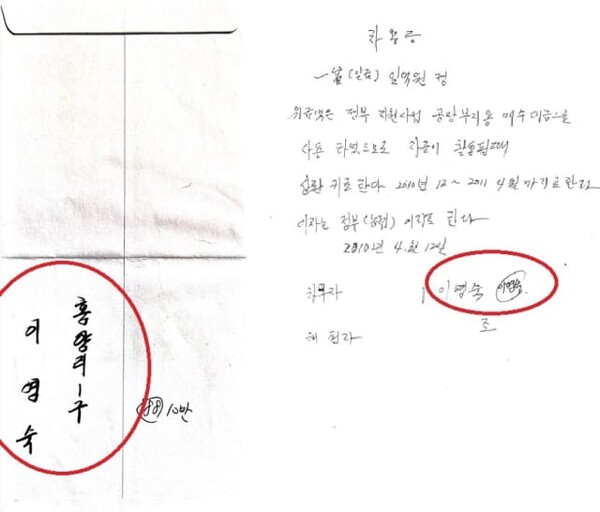 홍양리1구
이영숙
10만
차용증
一金(일금) 일억원 정
위금액은 정부 지원사업 공장부지용 매수대금으로
사용 하였으므로 자금이 환출될때
상환 키로 한다 2010년 12~2011 4월 까기로 한다
이자는 정부(농협) 이자로 한다
2010년 4월 12일
차무자 이영숙 이영숙
조